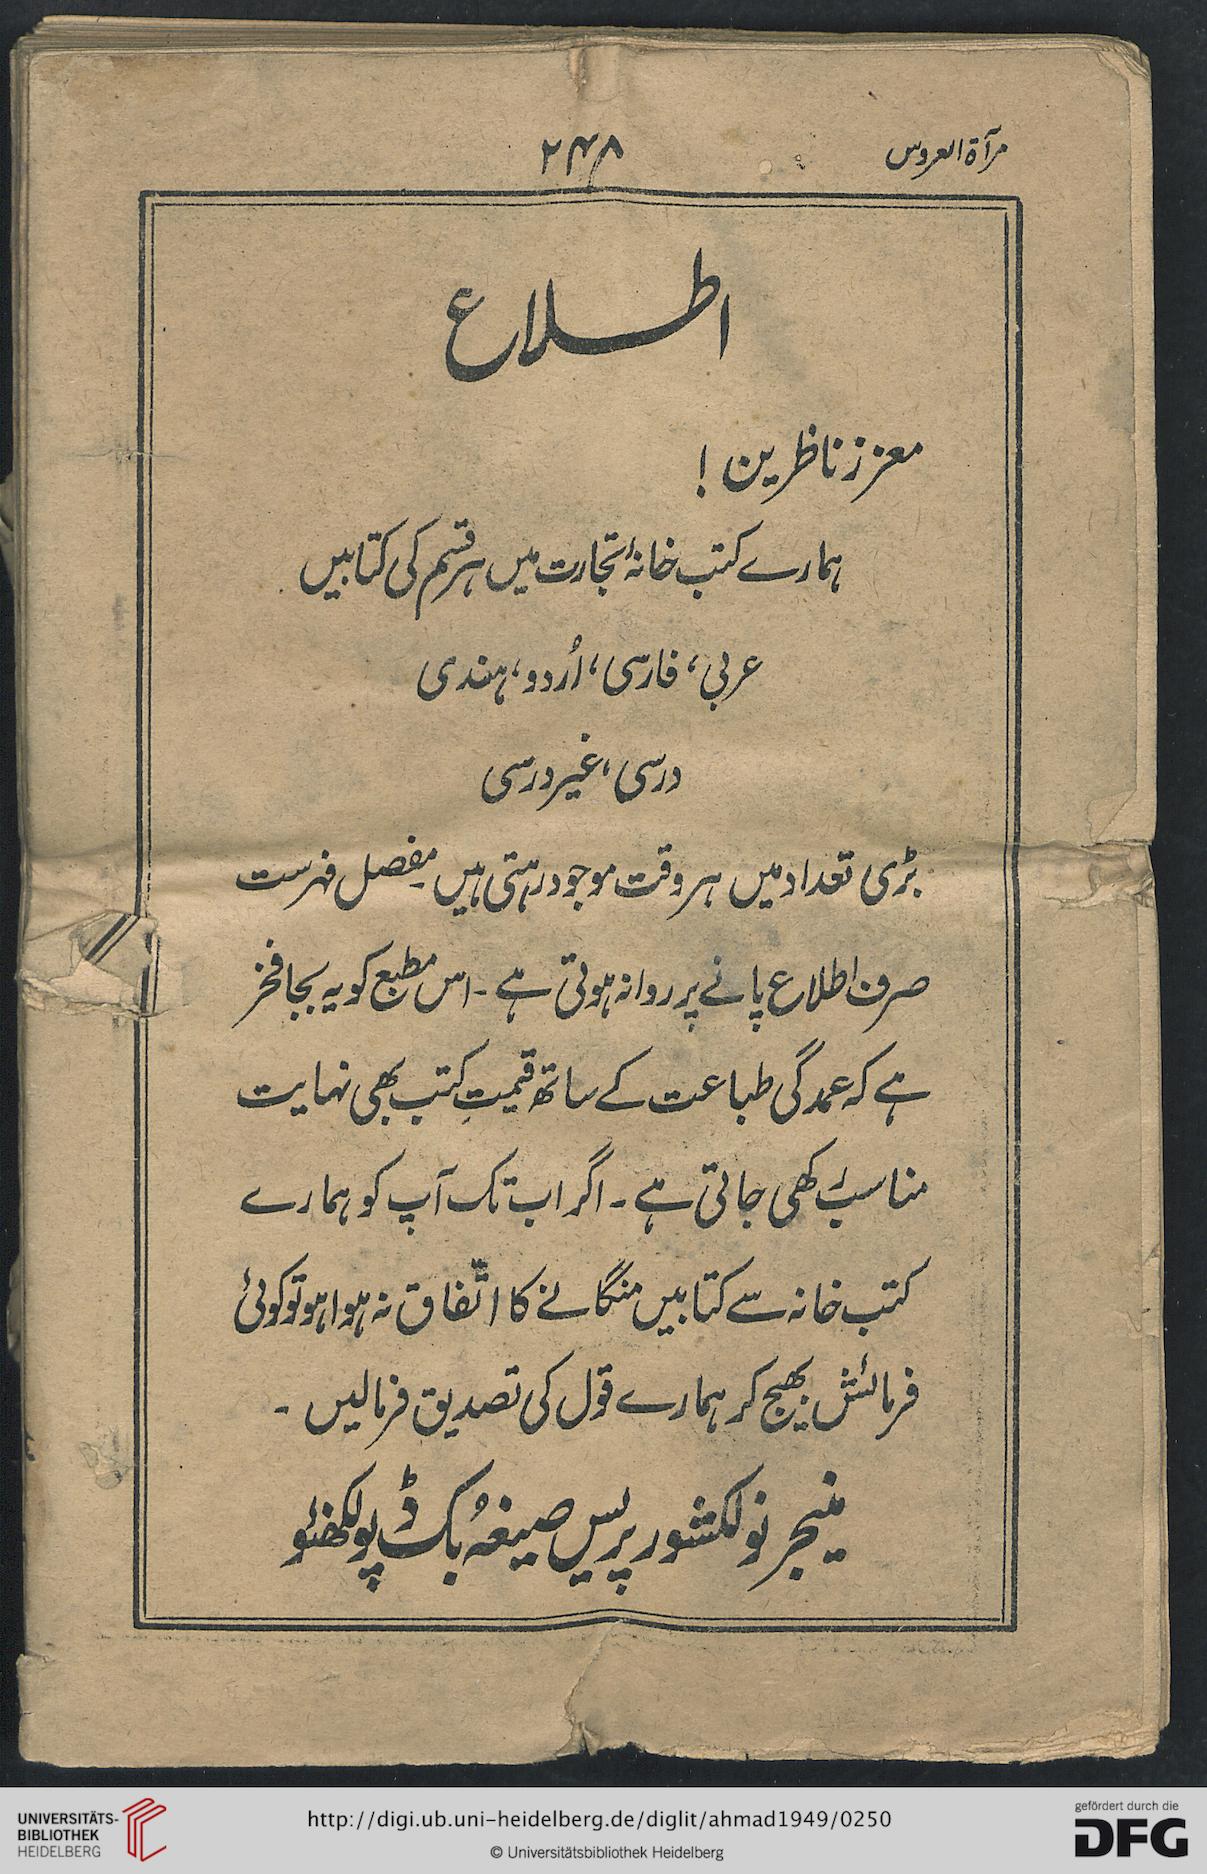 مرآۃ العروس
۲۴۸
اطلاع
معزز ناظرین!
ہمارے کتب خانۂ تجارت میں ہر قسم کی کتابیں
عربی، فارسی، اُردو، ہندی
درسی، غیر درسی
بڑی تعداد میں ہر وقت موجود رہتی ہیں مفصل فہرست
صرف اطلاع پانے پر روانہ ہوتی ہے۔ اس مطبع کو یہ بجا فخر
ہے کہ عمدگی طباعت کے ساتھ قیمتِ کتب بھی نہایت
مناسب رکھی جاتی ہے۔ اگر اب تک آپ کو ہمارے
کتب خانہ سے کتابیں منگانے کا اتّفاق نہ ہوا ہو تو کوئی
فرمائش بھیج کر ہمارے قول کی تصدیق فرمالیں۔
منیجر نولکشور پریس صیغۂ بک ڈپو لکھنؤ
UNIVERSITÄTS-
BIBLIOTHEK
HEIDELBERG
http://digi.ub.uni-heidelberg.de/diglit/ahmad1949/0250
© Universitätsbibliothek Heidelberg
gefördert durch die
DFG